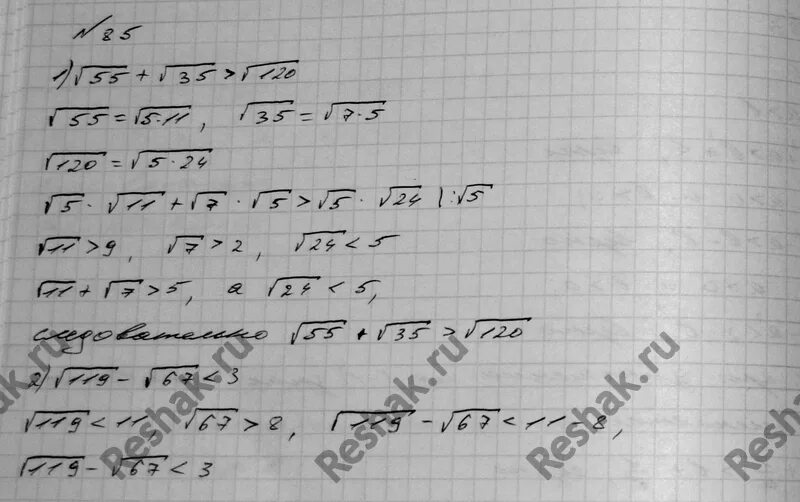 № 85
1) √55 + √35 > √120
√55 = √5·11, √35 = √7·5
√120 = √5·24
√5 · √11 + √7 · √5 > √5 · √24 |:√5
√11 > 9, √7 > 2, √24 < 5
√11 + √7 > 5, а √24 < 5,
следовательно √55 + √35 > √120
2) √119 - √67 < 3
√119 < 11, √67 > 8, √119 - √67 < 11 - 8,
√119 - √67 < 3
Reshak.ru
Reshak.ru
Reshak.ru
Reshak.ru